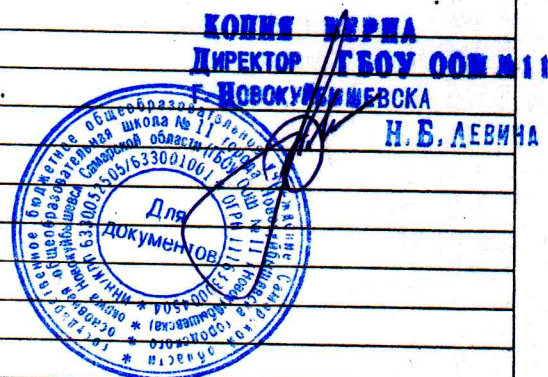 КОПИЯ ВЕРНА
ДИРЕКТОР ГБОУ ООШ № 11
Г. НОВОКУЙБЫШЕВСКА
Н. Б. ЛЕВИНА
государственное бюджетное общеобразовательное учреждение Самарской области
основная общеобразовательная школа № 11 города Новокуйбышевска городского
округа Новокуйбышевск Самарской области (ГБОУ ООШ № 11 г. Новокуйбышевска)
* ИНН/КПП 6330052505/633001001 * ОГРН
Для
документов